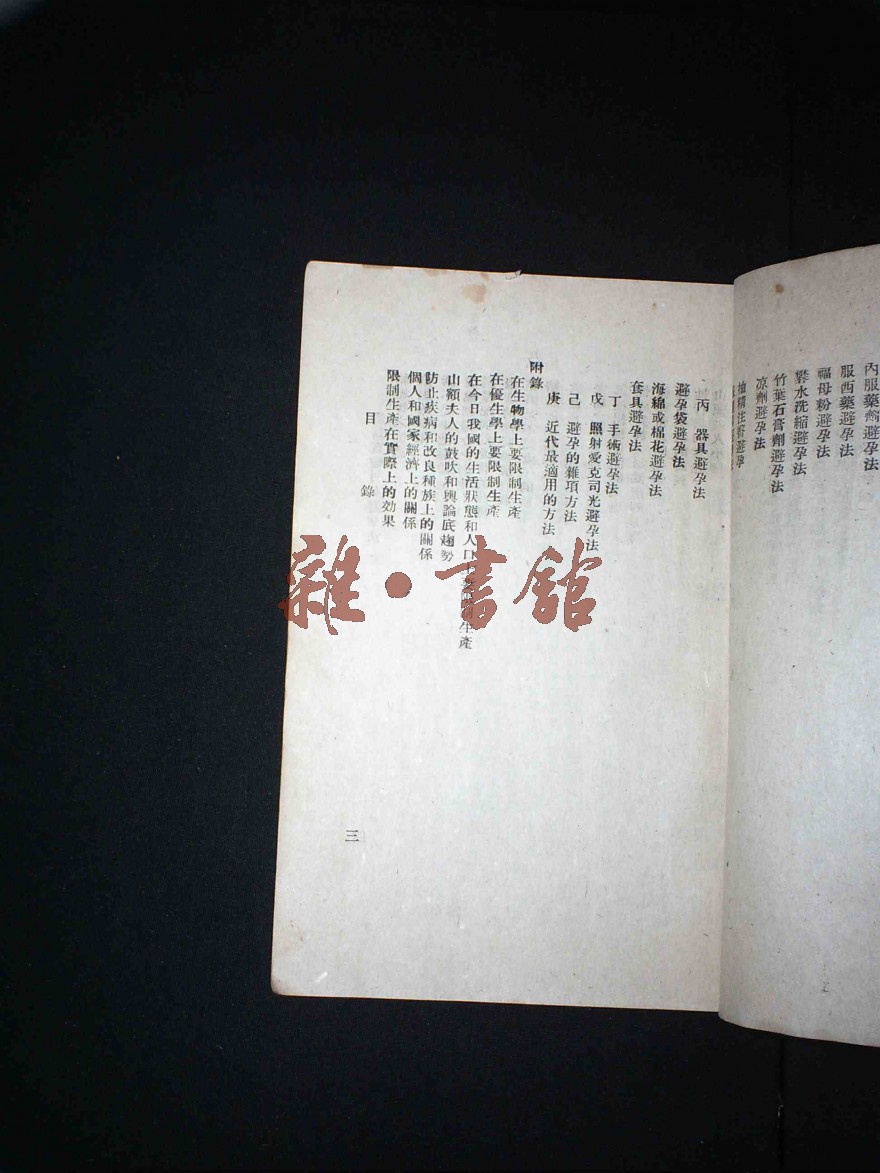 內服藥劑避孕法
服西藥避孕法
福母粉避孕法
礬水洗縮避孕法
竹葉石膏劑避孕法
凉劑避孕法
丙 器具避孕法
避孕袋避孕法
海綿或棉花避孕法
套具避孕法
丁 手術避孕法
戊 照射愛克司光避孕法
己 避孕的雜項方法
庚 近代最適用的方法
附錄
在生物學上要限制生產
在優生學上要限制生產
在今日我國的生活狀態和人口上要限制生產
山額夫人的鼓吹和輿論底趨勢
防止疾病和改良種族上的關係
個人和國家經濟上的關係
限制生產在實際上的効果
目錄
三
雜·書館